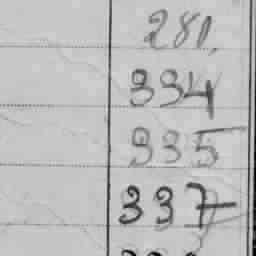 280.
334
335
337